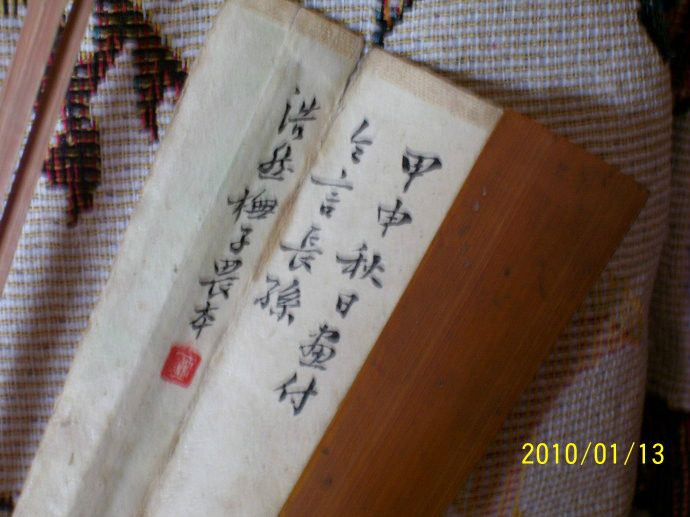 甲申秋日畫付
言長孫
浩然橅子畏本
2010/01/13